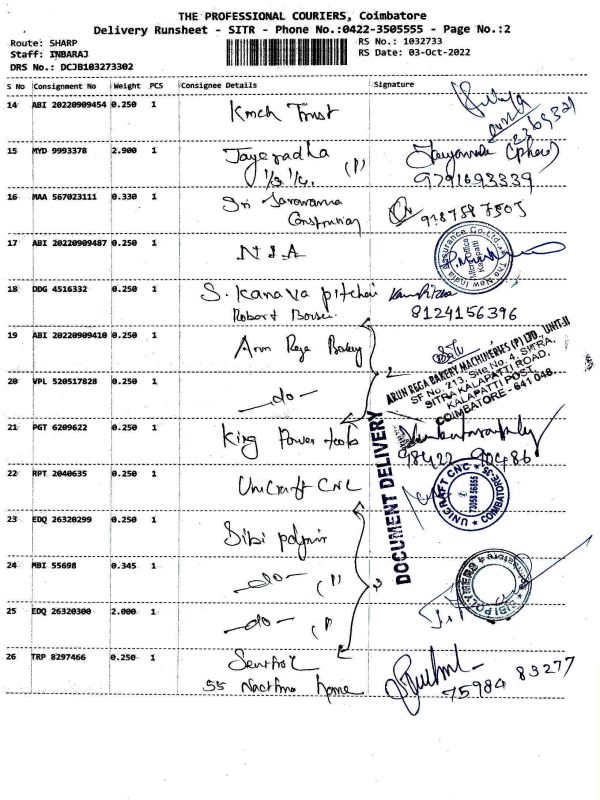 THE PROFESSIONAL COURIERS, Coimbatore
Delivery Runsheet - SITR - Phone No.:0422-3505555 - Page No.:2
Route: SHARP
RS No.: 1032733
Staff: INBARAJ
RS Date: 03-Oct-2022
DRS No.: DCJB103273302
S No Consignment No Weight PCS Consignee Details Signature
14 ABI 20220909454 0.250 1 Kmch Trust
15 MYD 9993378 2.900 1 Jayapradha
(1)
9791693339
16 MAA 567023111 0.330 1 Sri Saravanna
Construction
17 ABI 20220909487 0.250 1 N I A
The New India Assurance Co. Ltd.
Kalapatti
18 DDG 4516332 0.250 1 S. Kanava pitchai
8124156396
19 ABI 20220909410 0.250 1 Arun Rega Bakery
ARUN REGA BAKERY MACHINERIES (P) LTD., UNIT-II
SF No. 213, Site No. 4, SITRA,
SITRA KALAPATTI ROAD,
KALAPATTI POST,
COIMBATORE - 641 048.
20 VPL 520517828 0.250 1 -do-
21 PGT 6209622 0.250 1 King Power tools
98422 90486
DOCUMENT DELIVERY
22 RPT 2040635 0.250 1 Unicraft CNC
UNICRAFT CNC COIMBATORE-35
23 EDQ 26320299 0.250 1 Sibi polymer
24 MBI 55698 0.345 1 -do- (1)
SIBI POLYMERS
25 EDQ 26320300 2.000 1 -do- (1)
26 TRP 8297466 0.250 1 Senthil
55 home
75984 83277